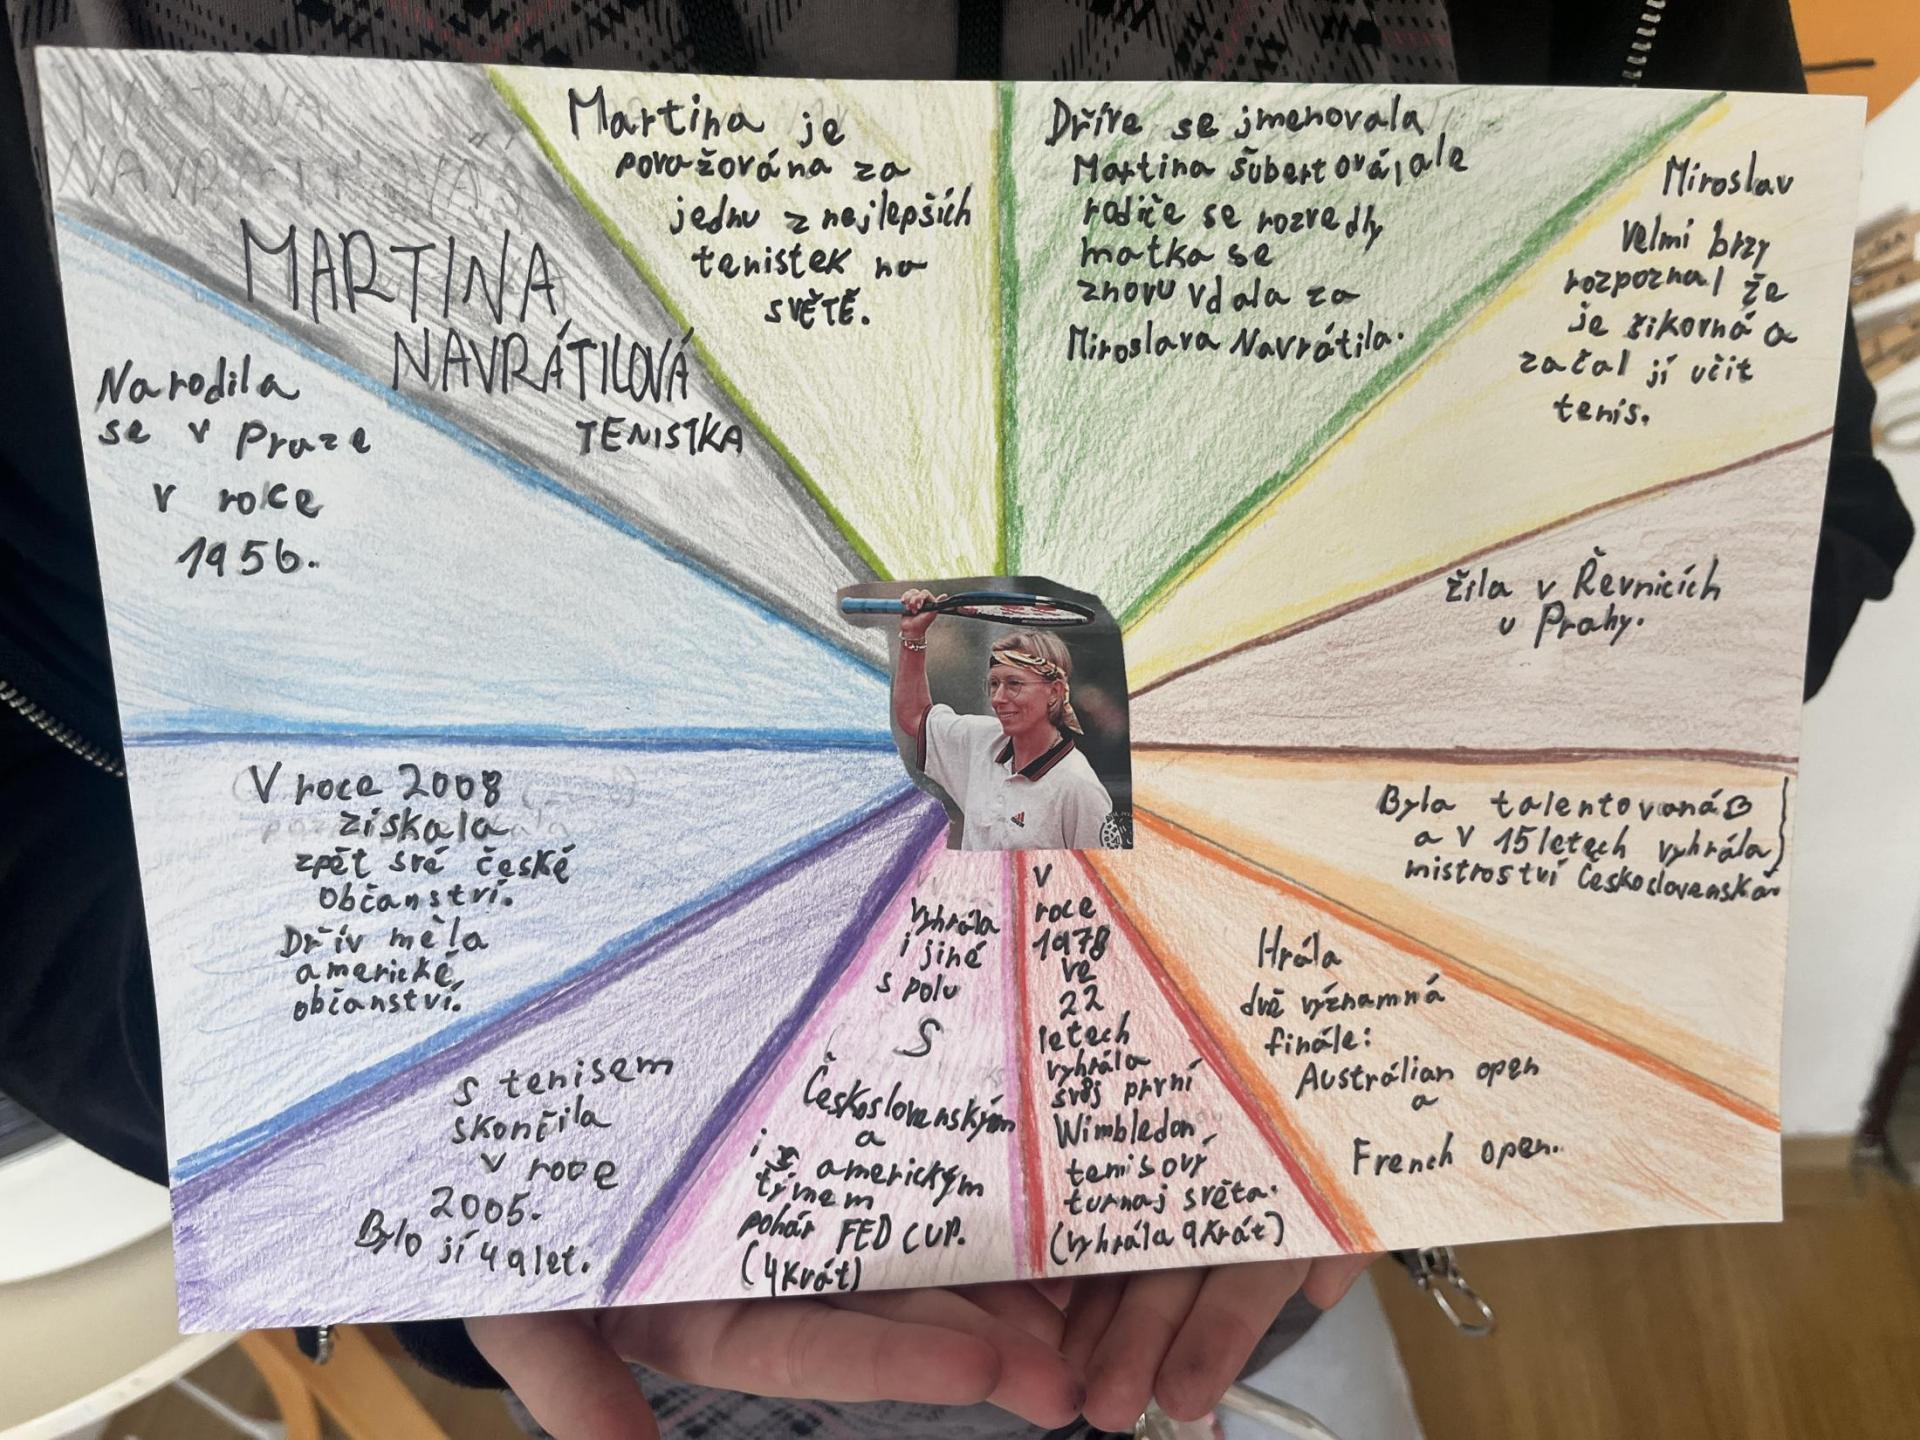 MARTINA
NAVRÁTILOVÁ
TENISTKA
Martina je
považována za
jednu z nejlepších
tenistek na
SVĚTĚ.
Dříve se jmenovala
Martina Šubertová, ale
rodiče se rozvedly
matka se
znovu vdala za
Miroslava Navrátila.
Miroslav
Velmi brzy
rozpoznal že
je šikorná a
začal jí učit
tenis.
žila v Řevnicích
u Prahy.
Byla talentovaná
a v 15 letech vyhrála
mistroství Československa.
Hrála
dvě významná
finále:
Austrálian open
a
French open.
V
roce
1978
ve
22
letech
vyhrála
svůj první
Wimbledon
tenisový
turnaj světa.
(vyhrála 9krát)
Vyhrála
i jiné
s polu
S
Československým
a
i s americkým
týmem
pohár FED CUP.
(4krát)
S tenisem
skončila
v roce
2005.
Bylo jí 49 let.
V roce 2008
získala
zpět své české
občanství.
Dřív měla
americké
občanství.
Narodila
se v Praze
v roce
1956.